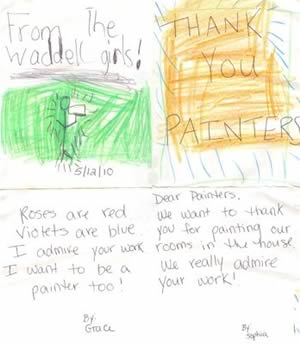 From The
Waddell girls!
5/12/10
THANK
YOU
PAINTERS
Roses are red
Violets are blue.
I admire your work
I want to be a
painter too!
By:
Grace
Dear Painters,
We want to thank
you for painting our
rooms in the house.
We really admire
your work!
By:
Sophia